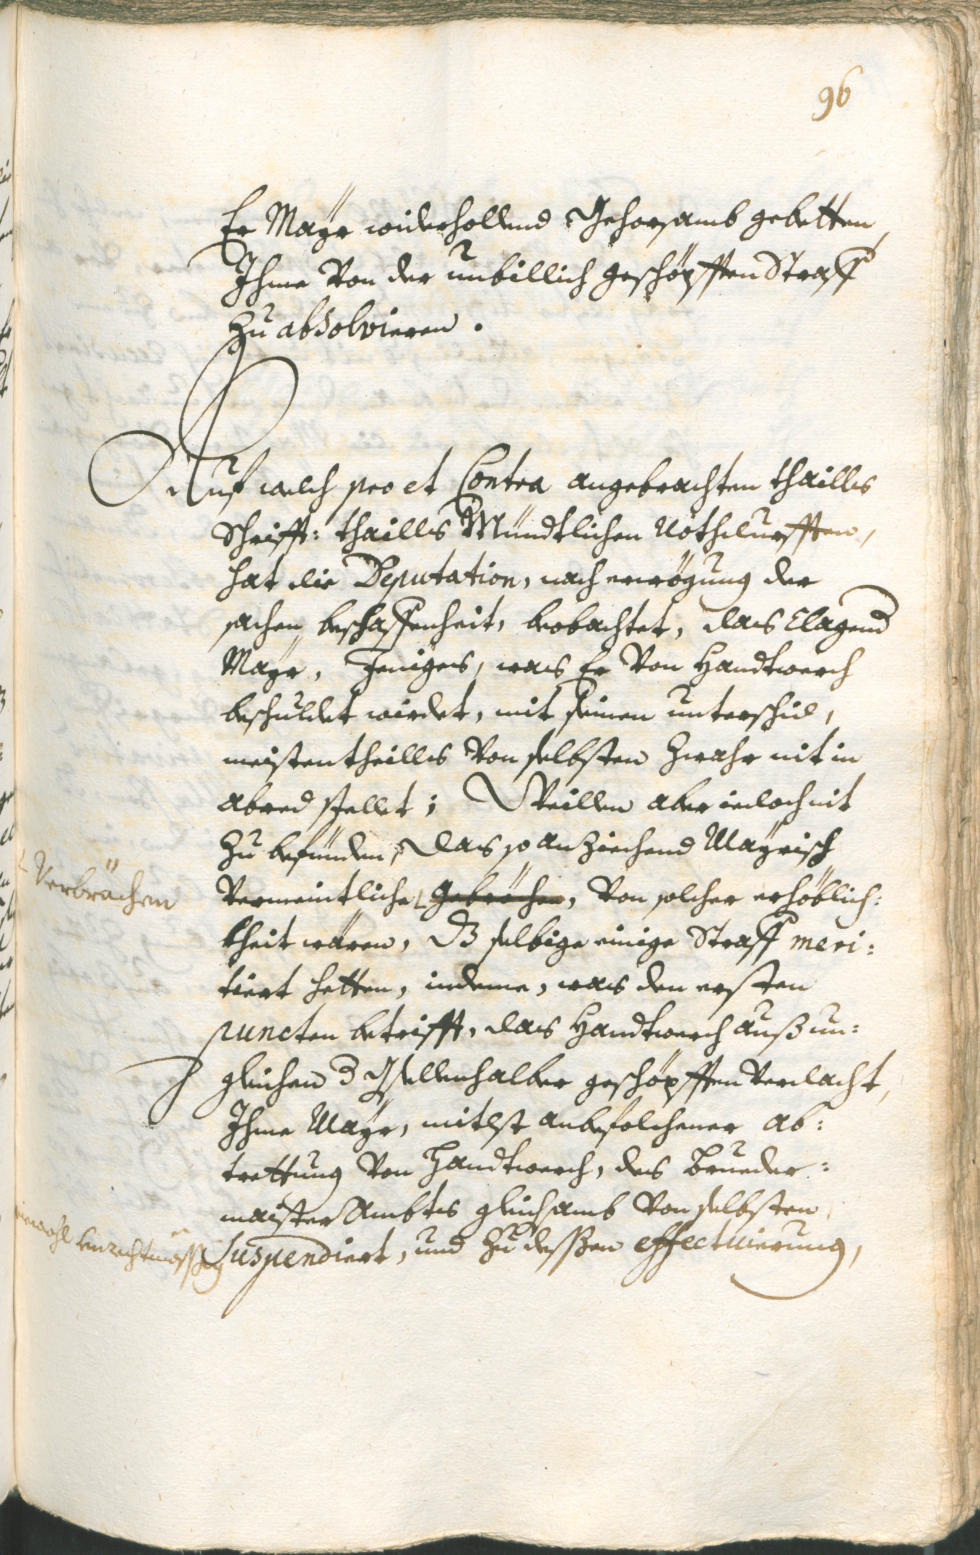 96
Er Mayr widerhollend gehorsamb gebetten,
Ihme von der unbillich geschöpfften Straff
zu absolvieren.
Auf welch pro et Contra angebrachten thailles
Schrifft: thailles Mündtlichen Nothdurfften,
hat die Deputation, nach erwögung der
sachen beschaffenheit, beobachtet, das Clagend
Mayr, Jeniges, was Er von Handtwerch
beschuldet wirdet, mit seinen unterschid,
meistentheilles von selbsten zwahr nit in
abred stellet; Weillen aber iedoch nit
zu befünden, das so anziechend Mayrisch
Verbröchen
vermeintliche Gebröchen, von solcher erhöblich:
kheit wären, dz selbige einige Straff meri:
tiert hetten, indeme, was den ersten
puncten betrifft, das Handtwerch auß un:
gleichen 3 Gsellenhalber geschöpfften verdacht,
Ihme Mayr, mitlst anbefolchener ab:
trettung von Handtwerch, des Brueder:
maister Ambts gleichsamb von selbsten,
suspendiert, und zu dessen effectuierung,